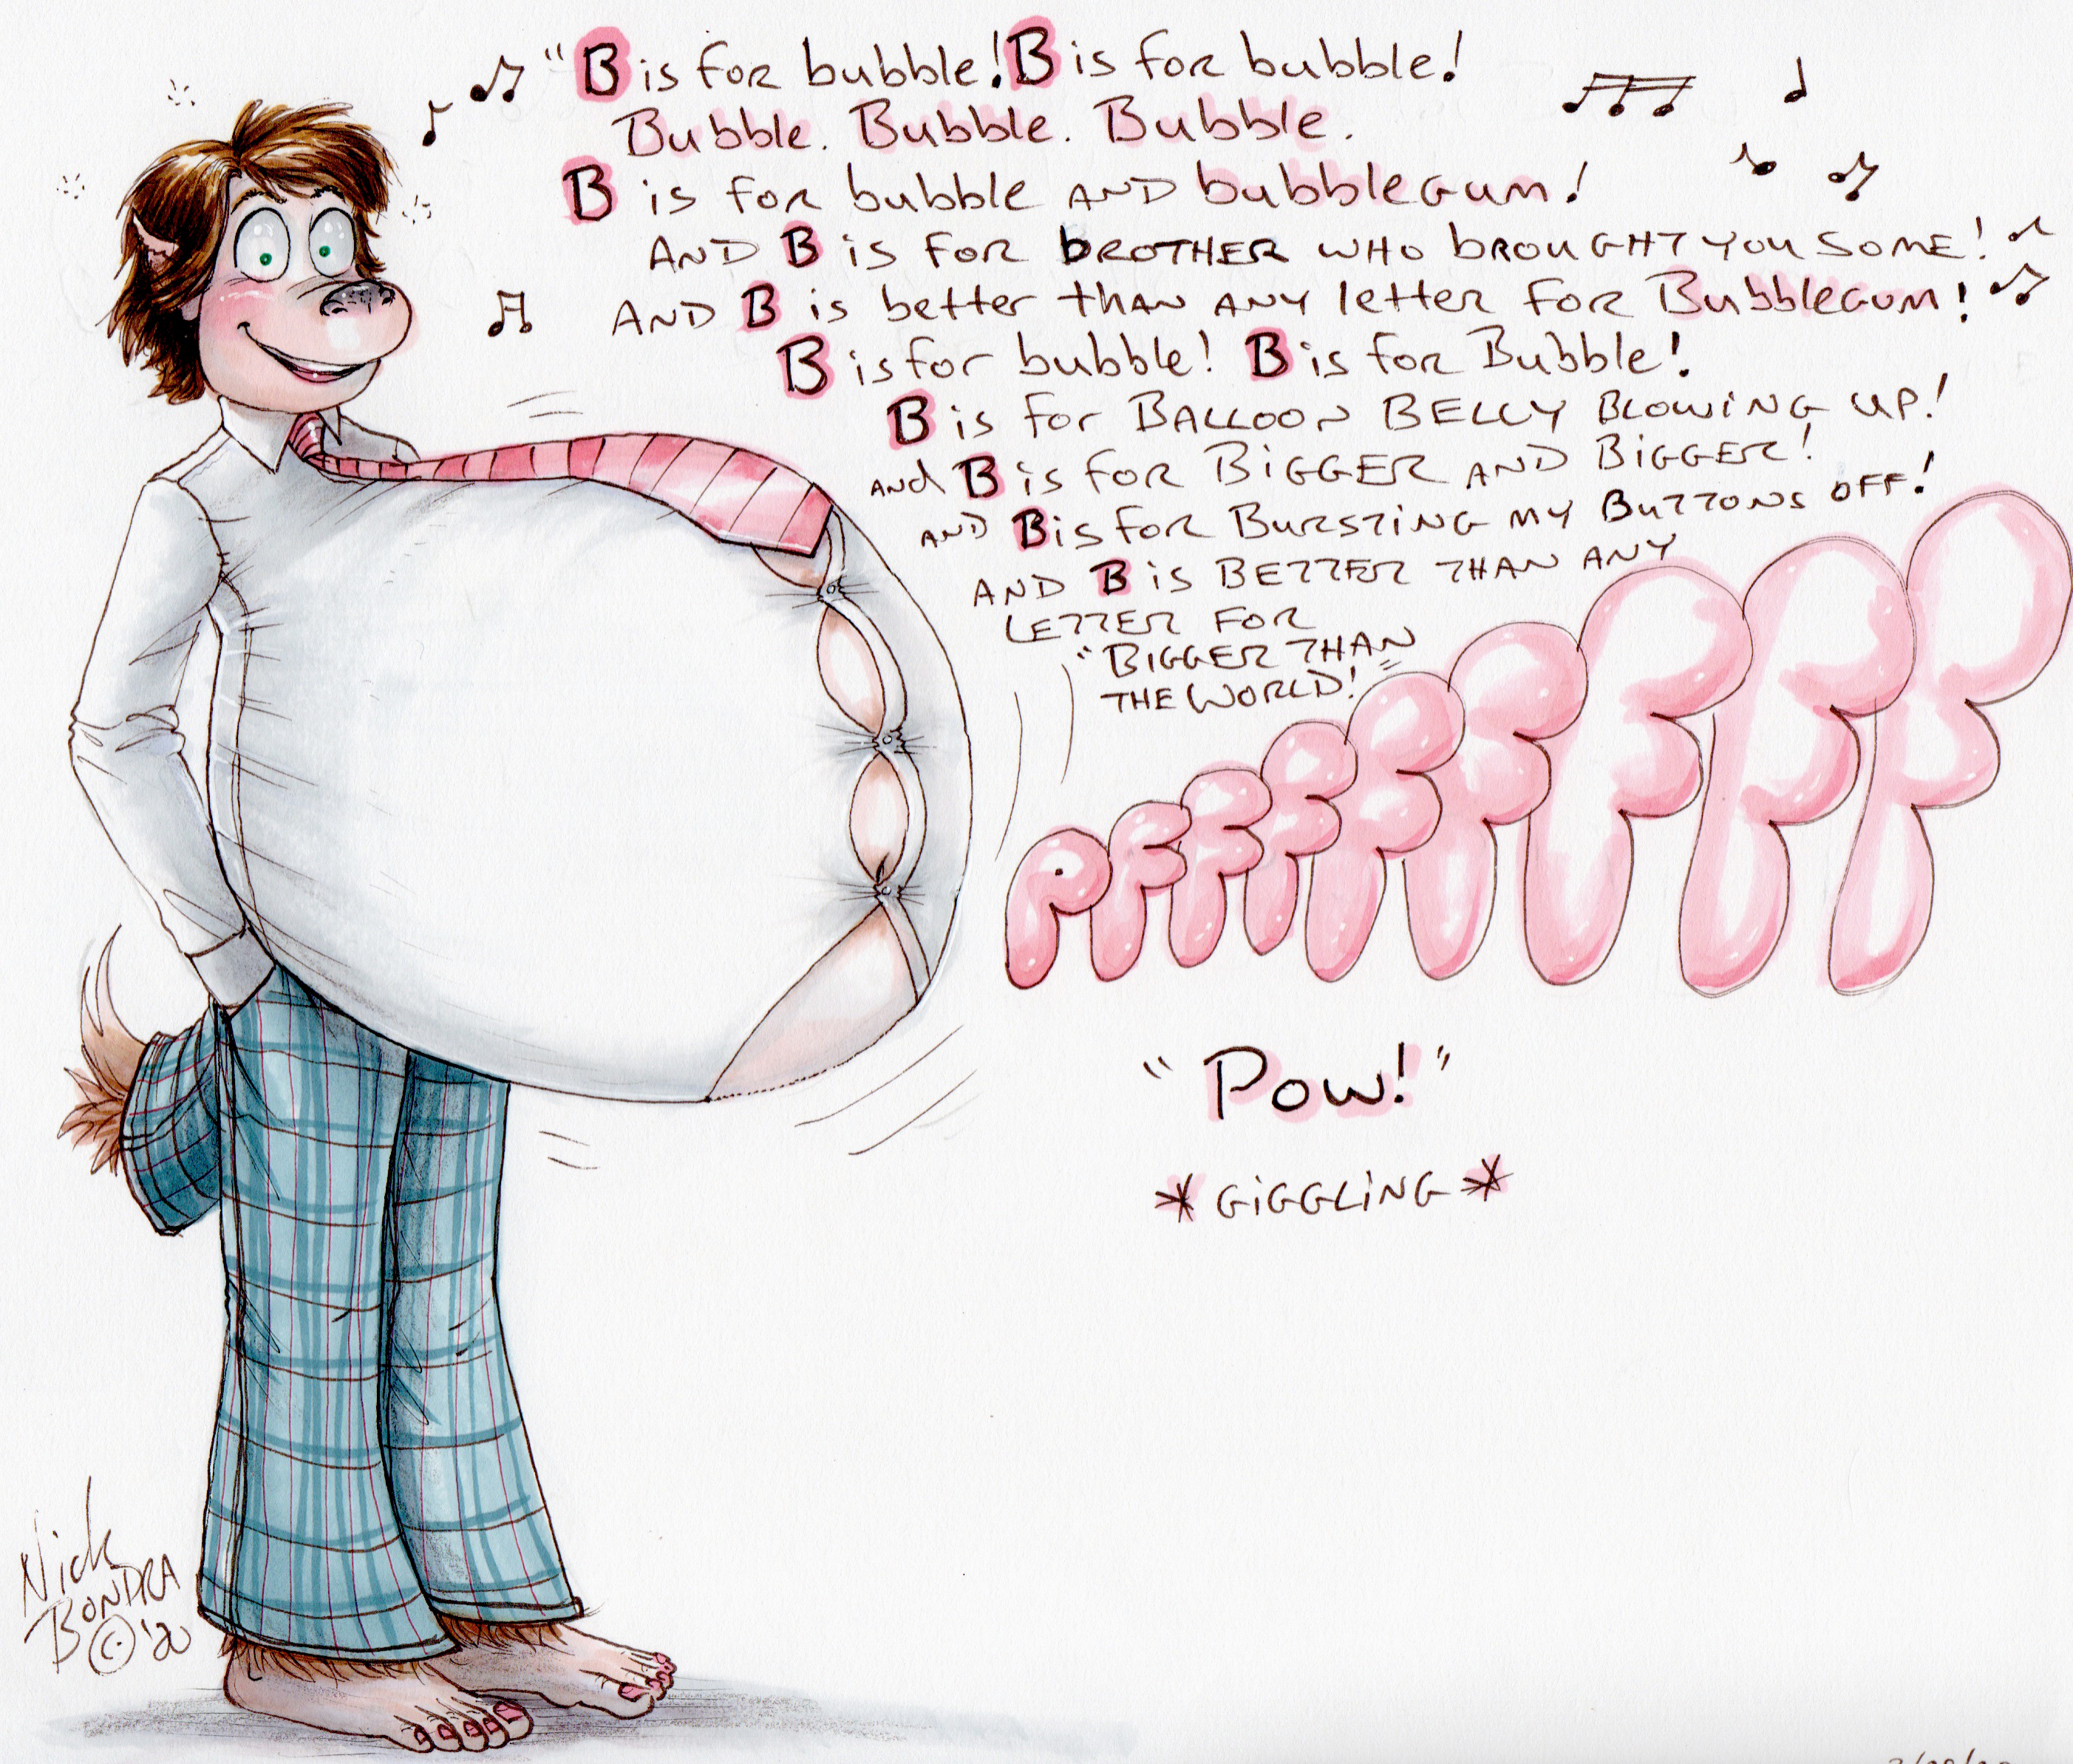 "B is for bubble! B is for bubble!
Bubble. Bubble. Bubble.
B is for bubble AND bubblegum!
AND B is for brother who brought you some!
AND B is better than any letter for Bubblegum!
B is for bubble! B is for Bubble!
B is for BALLOON BELLY BLOWING UP!
and B is for BIGGER AND BIGGER!
AND B is for BURSTING MY BUTTONS OFF!
AND B is BETTER THAN ANY
LETTER FOR
"BIGGER THAN
THE WORLD!"
PFFFFFFFFF
"Pow!"
*GIGGLING*
Nick
BONDRA
© '20